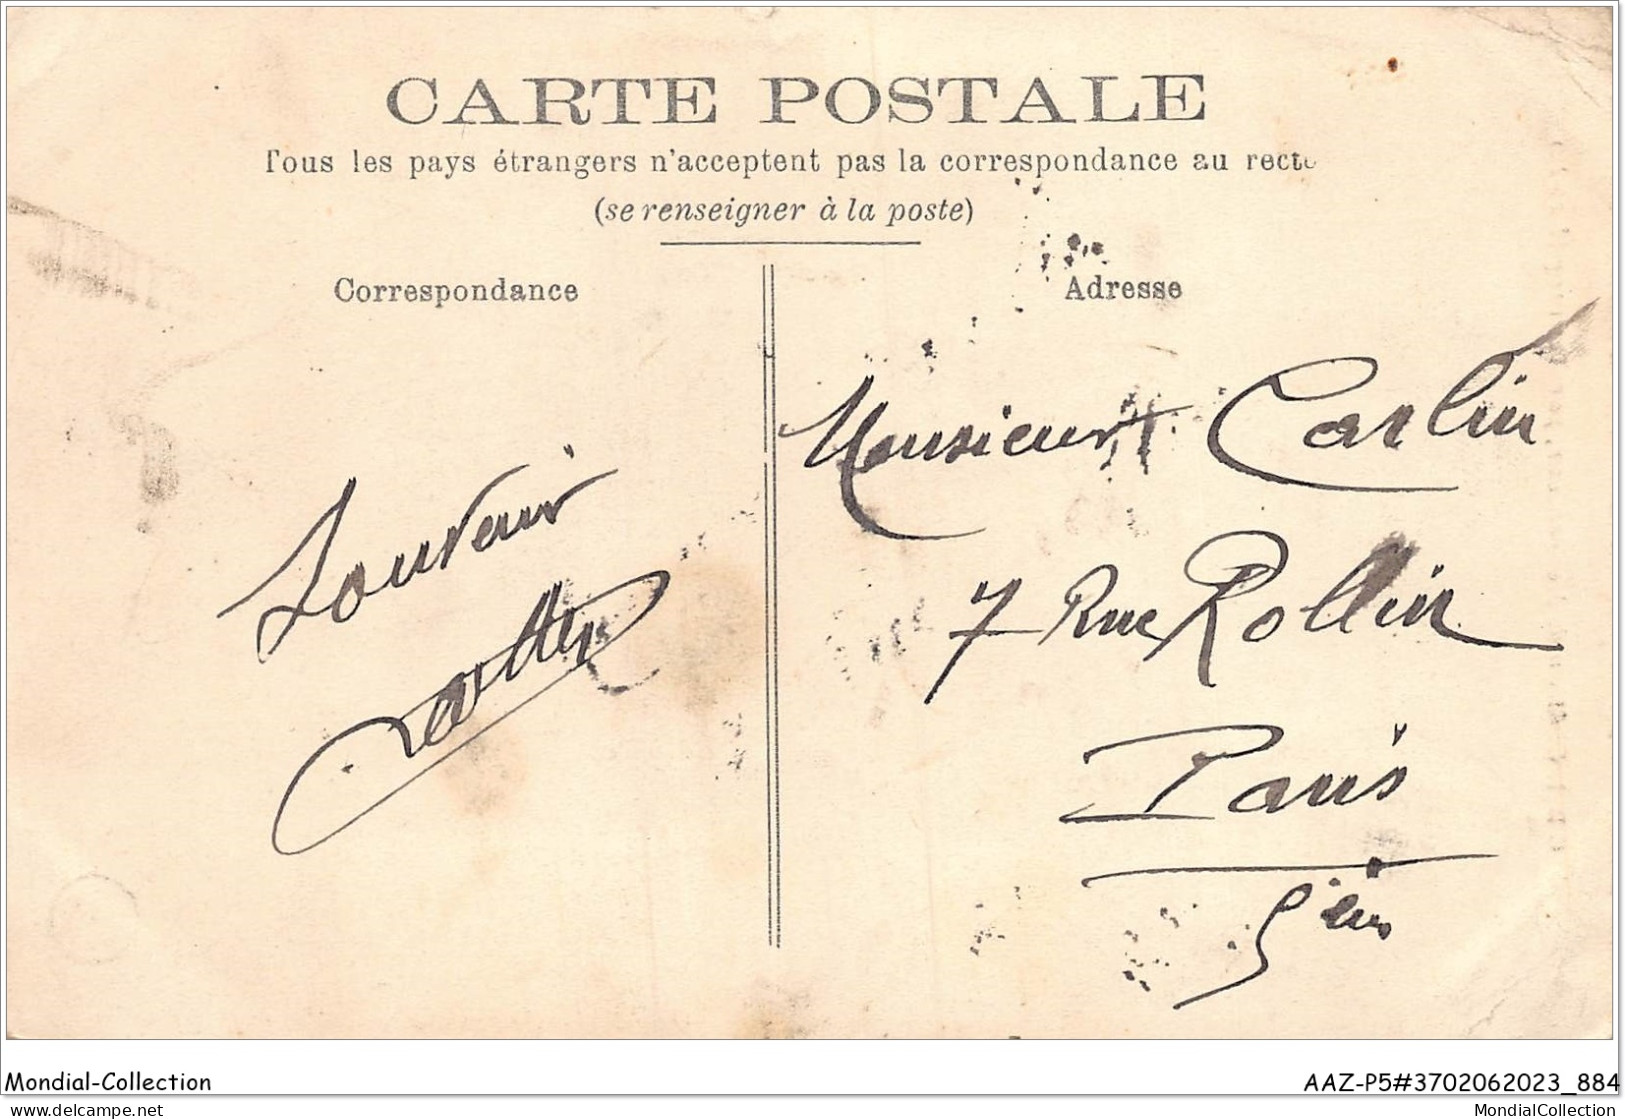 CARTE POSTALE
Tous les pays étrangers n'acceptent pas la correspondance au recto
(se renseigner à la poste)
Correspondance
Adresse
Souvenir
Monsieur Carlin
7 Rue Rollin
Paris
5ièm
Mondial-Collection
AAZ-P5#3702062023_884
www.delcampe.net
MondialCollection